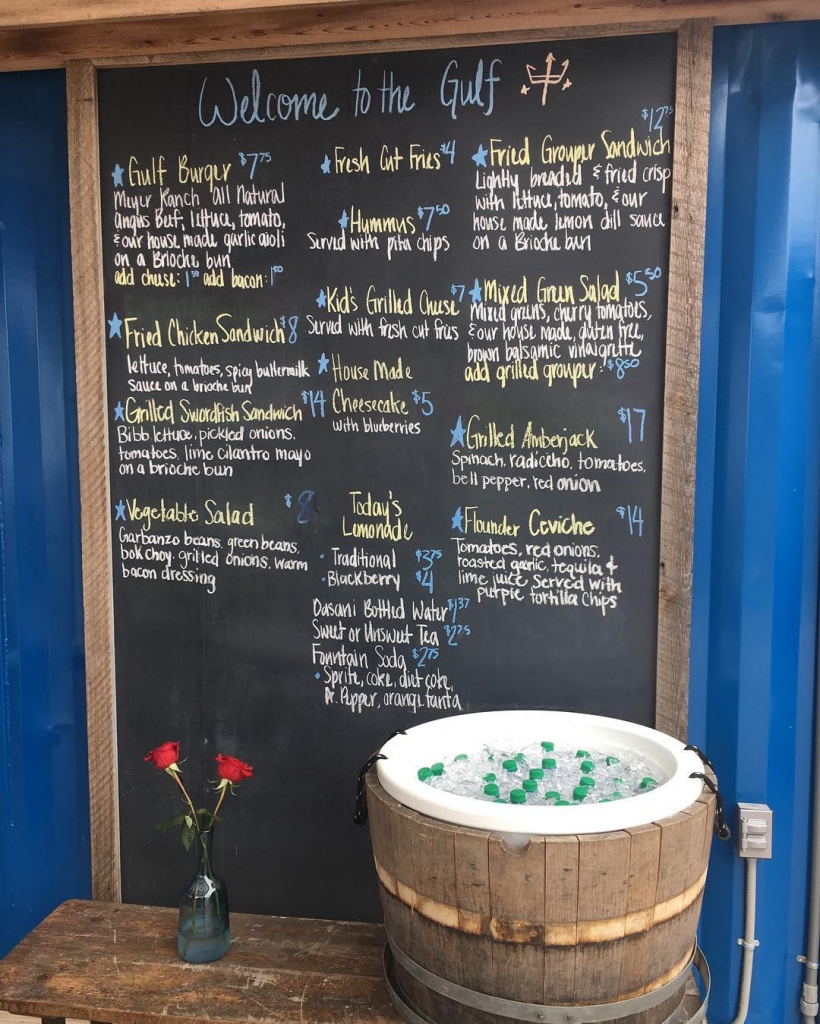 Welcome to the Gulf
Gulf Burger $7.75
Meyer Ranch all Natural
angus Beef, lettuce, tomato,
& our house made garlic aioli
on a Brioche bun
add cheese: 1.50 add bacon: 1.50
Fried Chicken Sandwich $8
lettuce, tomatoes, spicy buttermilk
sauce on a brioche bun
Grilled Swordfish Sandwich $14
Bibb lettuce, pickled onions,
tomatoes, lime cilantro mayo
on a brioche bun
Vegetable Salad $8
Garbanzo beans, green beans,
bok choy, grilled onions, warm
bacon dressing
Fresh Cut Fries $4
Hummus $7.50
Served with pita chips
Kid's Grilled Cheese $7
Served with fresh cut fries
House Made
Cheesecake $5
with blueberries
Today's
Lemonade
• Traditional $3.75
• Blackberry $4
Dasani Bottled Water $1.37
Sweet or Unsweet Tea $2.25
Fountain Soda $2.75
• Sprite, coke, diet coke,
Dr. Pepper, orange fanta
$12.75
Fried Grouper Sandwich
Lightly breaded & fried crisp
with lettuce, tomato, & our
house made lemon dill sauce
on a Brioche bun
Mixed Green Salad $5.50
Mixed greens, cherry tomatoes,
& our house made, gluten free,
brown balsamic vinaigrette
add grilled grouper: $8.50
Grilled Amberjack $17
Spinach, radiccho, tomatoes,
bell pepper, red onion
Flounder Ceviche $14
Tomatoes, red onions,
roasted garlic, tequila &
lime juice served with
purple tortilla chips